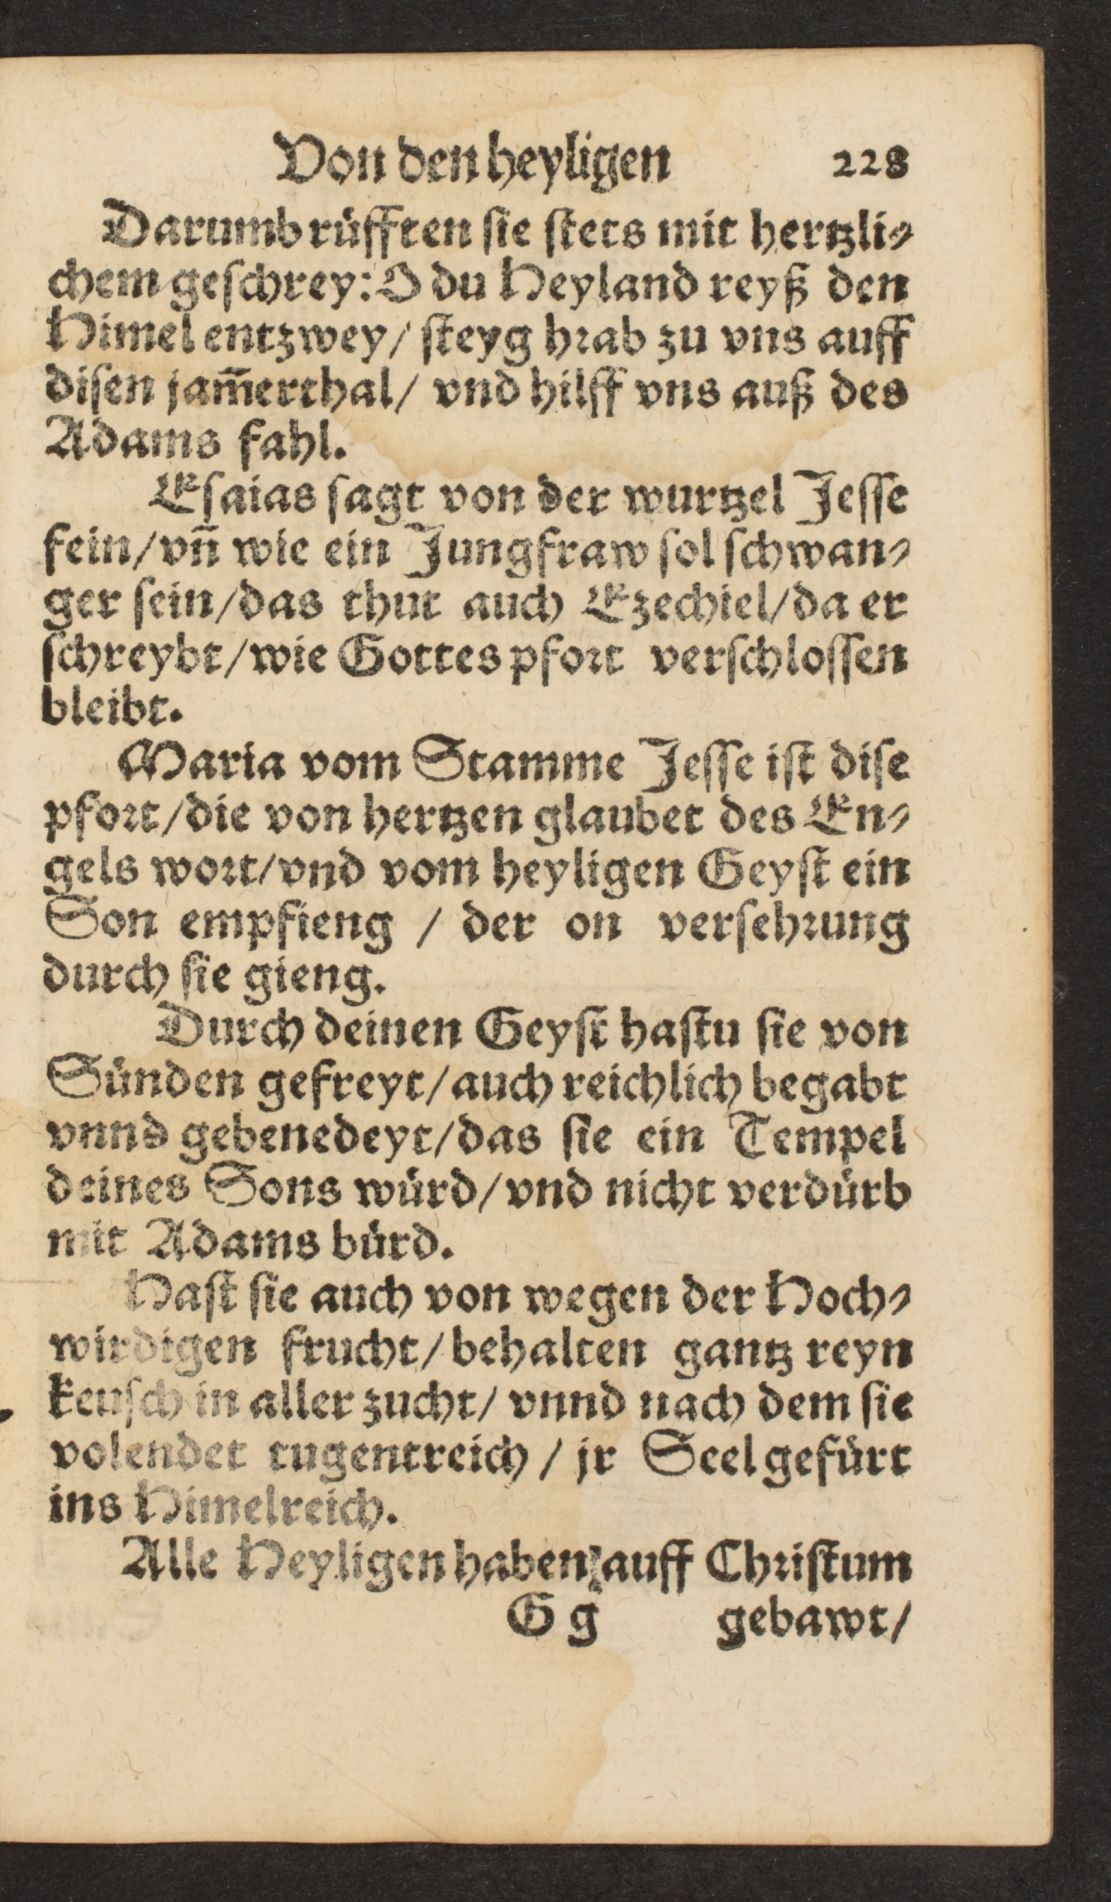 Von den heyligen 228
Darumb rüfften sie stets mit hertzli⸗
chem geschrey: O du Heyland reyß den
Himel entzwey/ steyg hrab zu vns auff
disen jam̅erthal/ vnd hilff vns auß des
Adams fahl.
Esaias sagt von der wurtzel Jesse
fein/vn̅ wie ein Jungfraw sol schwan⸗
ger sein/das thut auch Ezechiel/da er
schreybt/wie Gottes pfort verschlossen
bleibt.
Maria vom Stamme Jesse ist dise
pfort/die von hertzen glaubet des En⸗
gels wort/vnd vom heyligen Geyst ein
Son empfieng / der on versehrung
durch sie gieng.
Durch deinen Geyst hastu sie von
Sünden gefreyt/auch reichlich begabt
vnnd gebenedeyt/das sie ein Tempel
deines Sons würd/vnd nicht verdürb
mit Adams bürd.
Hast sie auch von wegen der Hoch⸗
wirdigen frucht/behalten gantz reyn
keusch in aller zucht/ vnnd nach dem sie
volendet tugentreich / jr Seel gefürt
ins Himelreich.
Alle Heyligen haben auff Christum
G g gebawt/